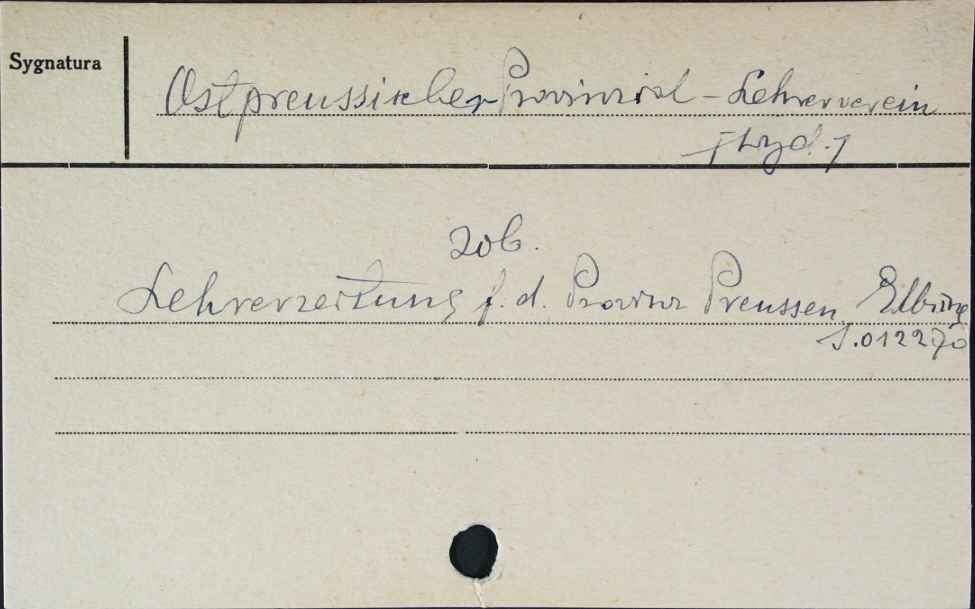 Sygnatura
Ostpreussischer Provinzial - Lehrerverein
[Wyd.]
zob.
Lehrerzeitung f. d. Provinz Preussen, Elbing
S.012270